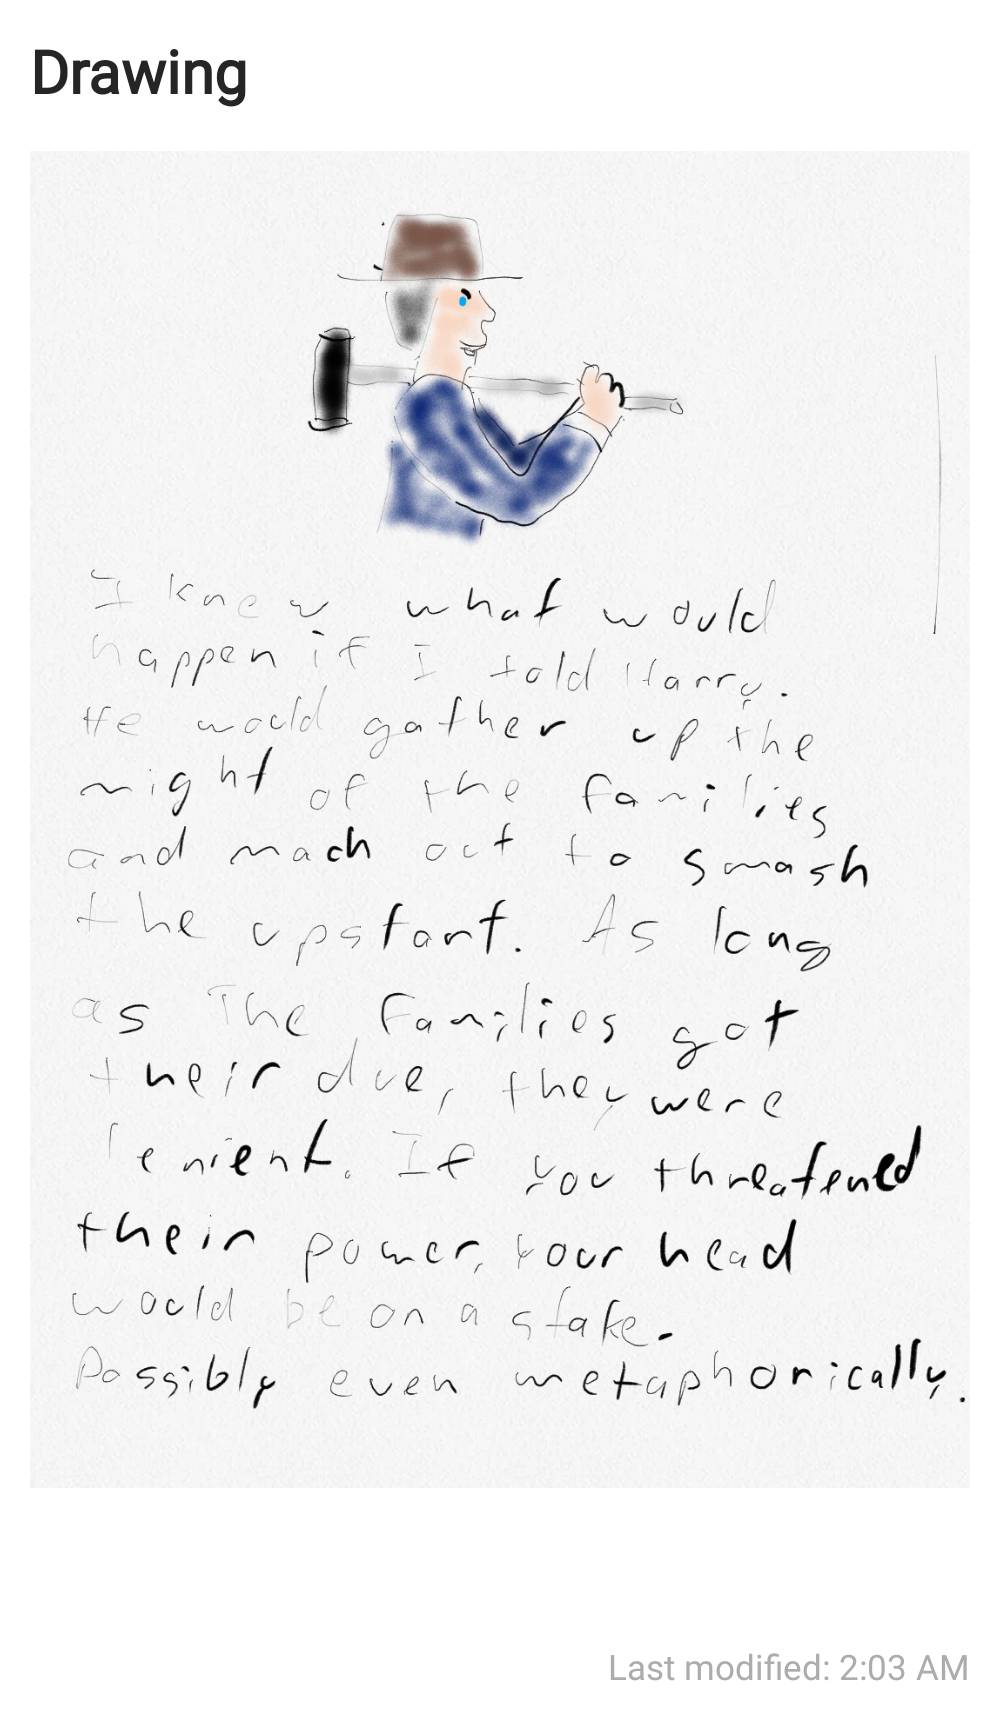 Drawing
I knew what would
happen if I told Harry.
He would gather up the
might of the families
and mach out to smash
the upstart. As long
as The Families got
their due, they were
lenient. If you threatened
their power, your head
would be on a stake.
Possibly even metaphorically.
Last modified: 2:03 AM